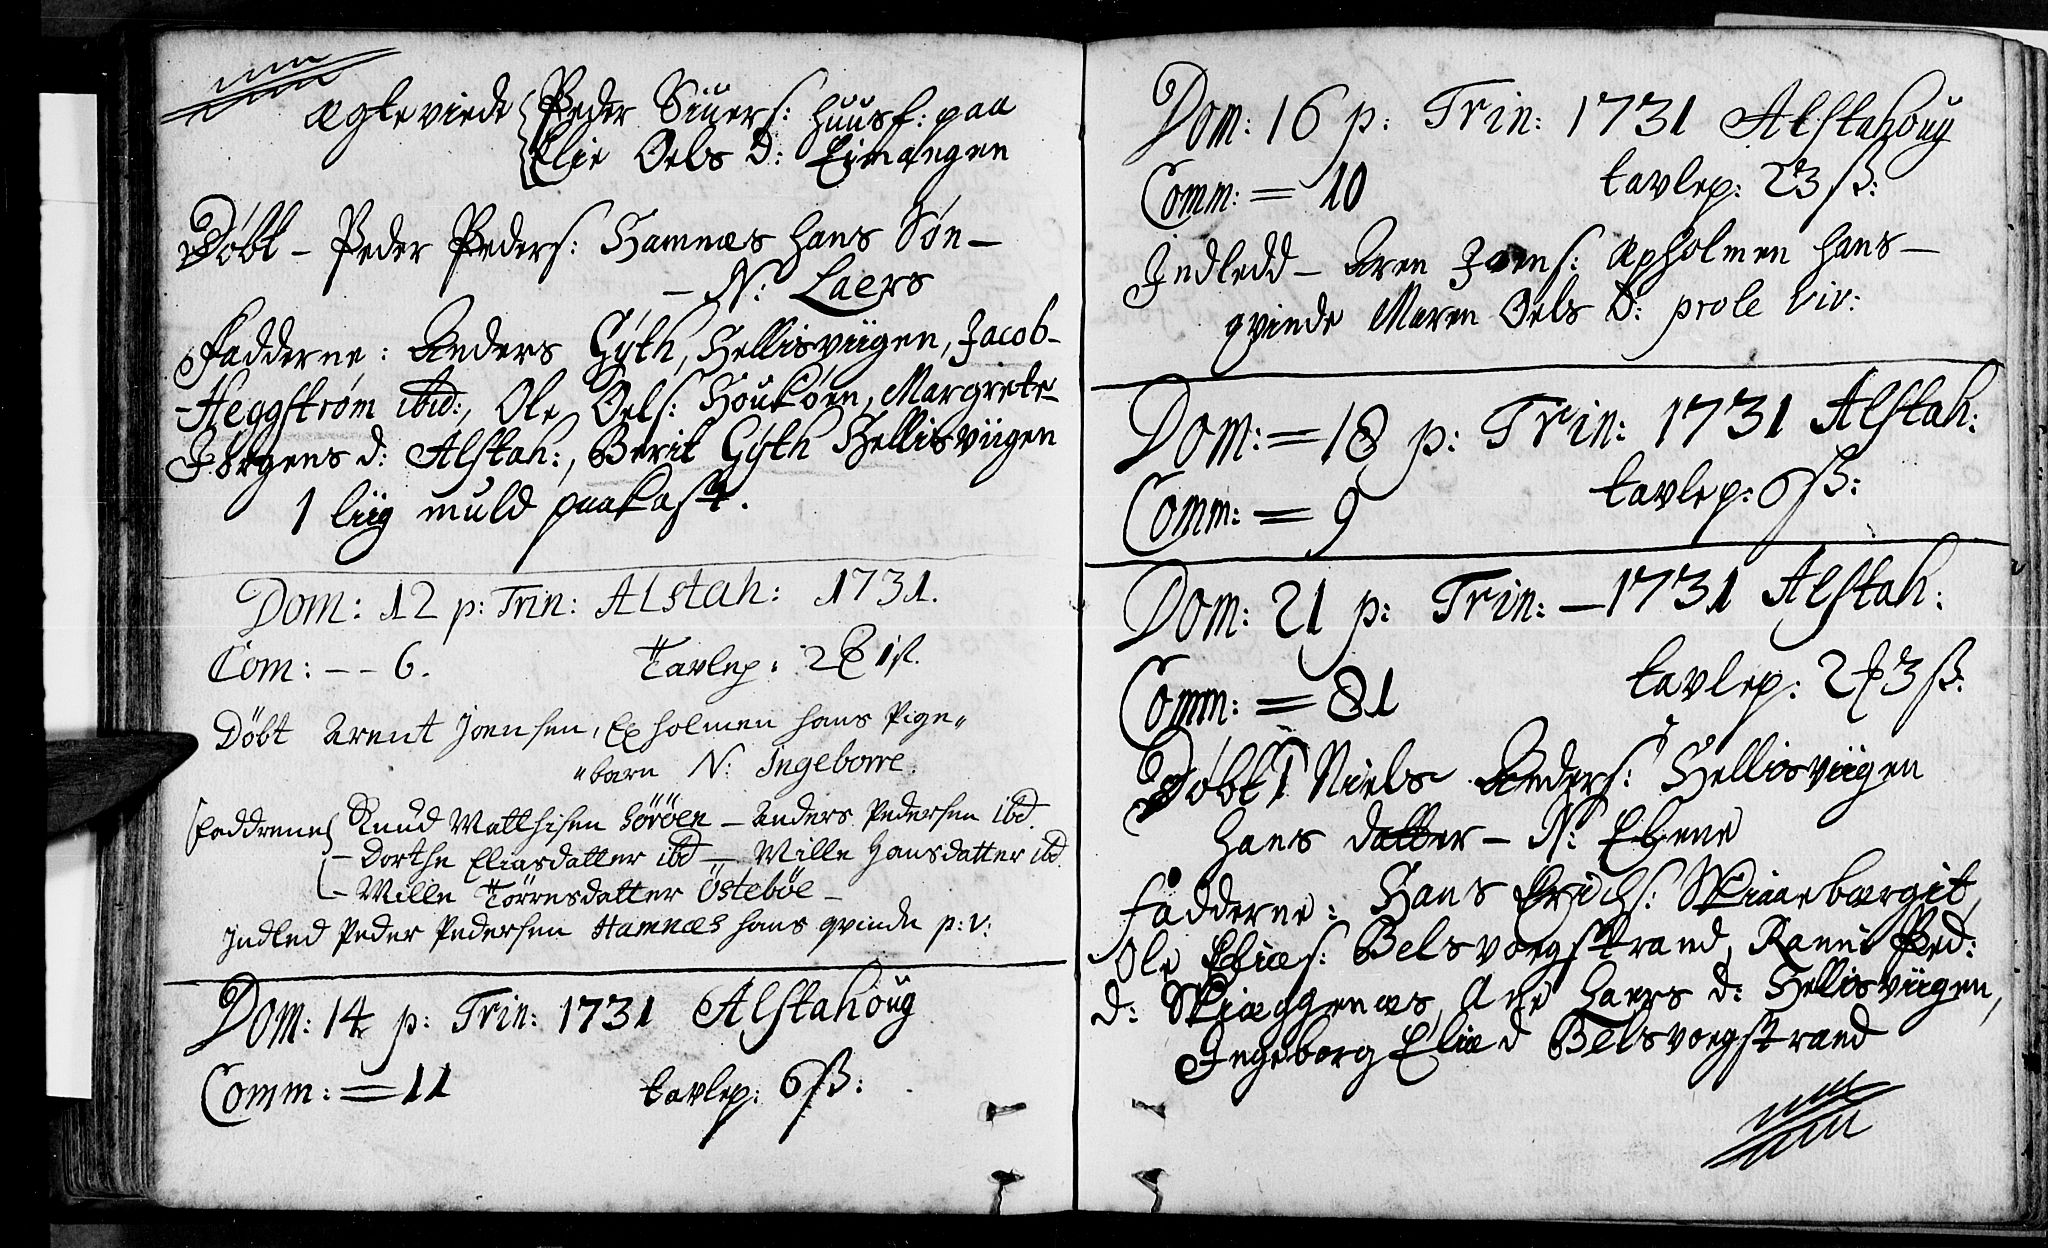 ægteviede Peder Siuers: huusf: paa
Elie Oels D: Eimangen
Døbt - Peder Peders: Hamnæs hans Søn -
- N: Laers
Fadderne: Anders Gyth, Hellisviigen, Jacob
Heggstrøm ibid:, Ole Oels: Houkøen, Margrete
Jørgens d: Alstah:, Berit Gyth Hellisviigen
1 liig muld paakast.
Dom: 12 p: Trin: Alstah: 1731.
Com: -- 6. Tavlep: 1 ß.
Døbt Arent Joensen, Exholmen hans Pige"
"barn N: Ingeborre.
Faddrene Knud Matthisen Söröen - Anders Pedersen ibd.
- Dorthe Eliasdatter ibd - Wille Hansdatter ibd.
- Wille Törresdatter Östebøe -
Indled Peder Pedersen Hamnæs hans qvinde p: v:
Dom: 14 p: Trin: 1731 Alstahoug
Comm: = 11 tavlep: 6 ß:
Dom: 16 p: Trin: 1731 Alstahoug
Comm: = 10 tavlep: 23 ß:
Indledd - Aren Joens: Apholmen hans -
qvinde Maren Oels D: prole viv:
Dom: = 18 p: Trin: 1731 Alstah:
Comm: = 9 tavlep: 6 ß:
Dom: 21 p: Trin: - 1731 Alstah:
Comm: = 81 tavlep: 3 ß:
Døbt Niels Anders: Hellisviigen
hans datter - N: Ebene
Fadderne: Hans Erichs:
Ole Elias: Belsvoegstrand, Ranni Ped:
d: Skiæggenæs, Ane Laers d: Hellisviigen,
Ingeborg Elia d Belsvoegstrand